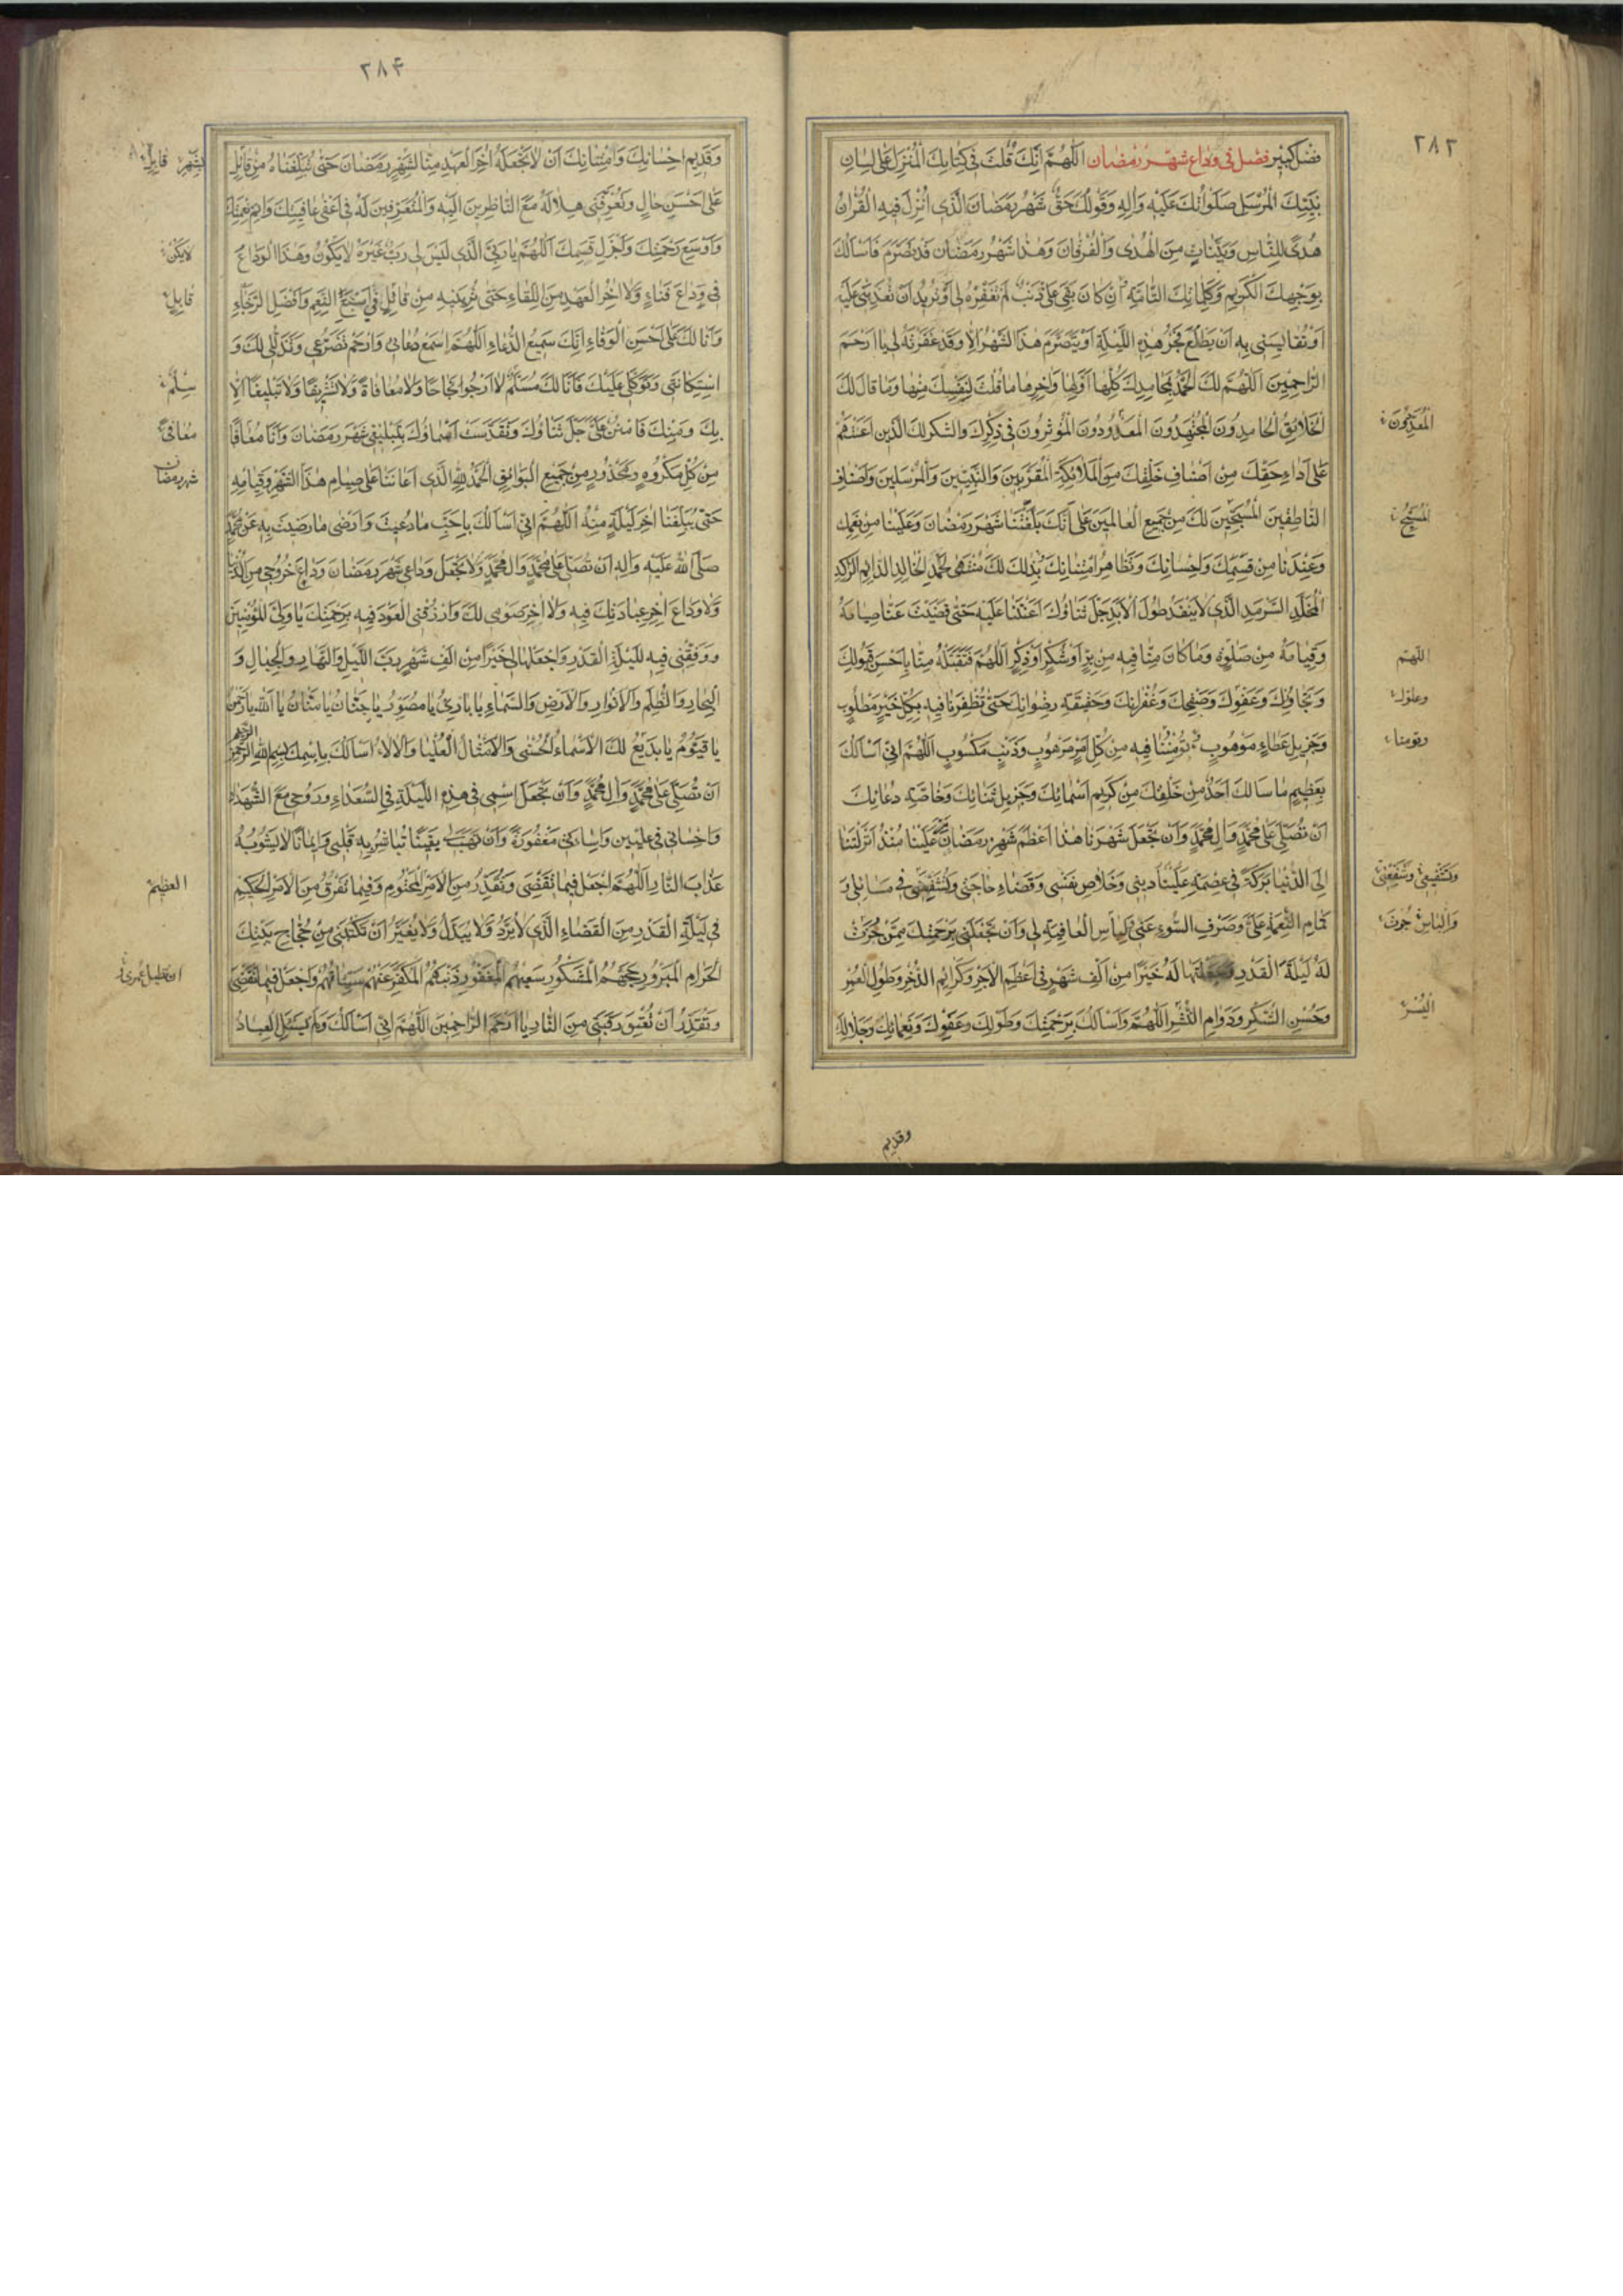 ٢٨٣
فَضْل كَبير فصل في وداع شهر رمضان اَللّٰهُمَّ اِنَّكَ قُلْتَ في كِتابِكَ الْمُنْزَلِ عَلى لِسانِ
نَبِيِّكَ الْمُرْسَلِ صَلَواتُكَ عَلَيْهِ وَآلِهِ وَقَوْلُكَ حَقٌّ شَهْرُ رَمَضانَ الَّذى اُنْزِلَ فيهِ الْقُرْانُ
هُدًى لِلنّاسِ وَبَيِّناتٍ مِنَ الْهُدى وَالْفُرْقانِ وَهذا شَهْرُ رَمَضانَ قَدْ تَصَرَّمَ فَاَسْاَلُكَ
بِوَجْهِكَ الْكَريمِ وَكَلِماتِكَ التّامَّةِ اِنْ كانَ بَقِيَ عَلَيَّ ذَنْبٌ لَمْ تَغْفِرْهُ لى اَوْ تُريدُ اَنْ تُعَذِّبَنى عَلَيْهِ
اَوْ تُقايِسَنى بِهِ اَنْ يَطْلُعَ فَجْرُ هذِهِ اللَّيْلَةِ اَوْ يَتَصَرَّمَ هذَا الشَّهْرُ اِلّا وَقَدْ غَفَرْتَهُ لى يا اَرْحَمَ
الرّاحِمينَ اَللّهُمَّ لَكَ الْحَمْدُ بِمَحامِدِكَ كُلِّها اَوَّلِها وَاخِرِها ما قُلْتَ لِنَفْسِكَ مِنْها وَما قالَ لَكَ
الْخَلائِقُ الْحامِدُونَ الْمُجْتَهِدُونَ الْمَعْدُودُونَ الْمُؤْثِرُونَ في ذِكْرِكَ وَالشُّكْرِ لَكَ الَّذينَ اَعَنْتَهُمْ
عَلى اَداءِ حَقِّكَ مِنْ اَصْنافِ خَلْقِكَ مِنَ الْمَلائِكَةِ الْمُقَرَّبينَ وَالنَّبِيّينَ وَالْمُرْسَلينَ وَاَصْنافِ
النّاطِقينَ الْمُسَبِّحينَ لَكَ مِنْ جَميعِ الْعالَمينَ عَلى اَنَّكَ بَلَّغْتَنا شَهْرَ رَمَضانَ وَعَلَيْنا مِنْ نِعَمِكَ
وَعِنْدَنا مِنْ قِسَمِكَ وَاِحْسانِكَ وَتَظاهُرِ امْتِنانِكَ فَبِذلِكَ لَكَ مُنْتَهَى الْحَمْدِ الْخالِدِ الدّائِمِ الرّاكِدِ
الْمُخَلَّدِ السَّرْمَدِ الَّذى لا يَنْفَدُ طُولَ الْاَبَدِ جَلَّ ثَناؤُكَ اَعَنْتَنا عَلَيْهِ حَتّى قَضَيْتَ عَنّا صِيامَهُ
وَقِيامَهُ مِنْ صَلوةٍ وَما كانَ مِنّا فيهِ مِنْ بِرٍّ اَوْ شُكْرٍ اَوْ ذِكْرٍ اَللّهُمَّ فَتَقَبَّلْهُ مِنّا بِاَحْسَنِ قَبُولِكَ
وَتَجاوُزِكَ وَعَفْوِكَ وَصَفْحِكَ وَغُفْرانِكَ وَحَقيقَةِ رِضْوانِكَ حَتّى تُظْفِرَنا فيهِ بِكُلِّ خَيْرٍ مَطْلُوبٍ
وَجَزيلِ عَطاءٍ مَوْهُوبٍ تُؤْمِنُنا فيهِ مِنْ كُلِّ اَمْرٍ مَرْهُوبٍ وَذَنْبٍ مَكْسُوبٍ اَللّهُمَّ اِنّى اَسْاَلُكَ
بِعَظيمِ ما سَاَلَكَ اَحَدٌ مِنْ خَلْقِكَ مِنْ كَريمِ اَسْمائِكَ وَجَزيلِ ثَنائِكَ وَخاصَّةِ دُعائِكَ
اَنْ تُصَلِّيَ عَلى مُحَمَّدٍ وَالِ مُحَمَّدٍ وَاَنْ تَجْعَلَ شَهْرَنا هذا اَعْظَمَ شَهْرِ رَمَضانَ مَرَّ عَلَيْنا مُنْذُ اَنْزَلْتَنا
اِلَى الدُّنْيا بَرَكَةً فى عِصْمَةِ دينى وَخَلاصِ نَفْسى وَقَضاءِ حاجَتى وَتُشَفِّعَنى فى مَسائِلى وَ
تَمامِ النِّعْمَةِ عَلَيَّ وَصَرْفِ السُّوءِ عَنّى وَلِباسِ الْعافِيَةِ لى وَاَنْ تَجْعَلَنى بِرَحْمَتِكَ مِمَّنْ حُزْتَ
لَهُ لَيْلَةَ الْقَدْرِ وَجَعَلْتَها لَهُ خَيْرًا مِنْ اَلْفِ شَهْرٍ فى اَعْظَمِ الْاَجْرِ وَكَرائِمِ الذُّخْرِ وَطُولِ الْعُمْرِ
وَحُسْنِ الشُّكْرِ وَدَوامِ الْيُسْرِ اَللّهُمَّ وَاَسْاَلُكَ بِرَحْمَتِكَ وَطَوْلِكَ وَعَفْوِكَ وَنَعْمائِكَ وَجَلالِكَ
اللّهمّ
وتشفّعنى
اليُسْرِ
وقديم
٢٨۴
وَقَديمِ اِحْسانِكَ وَامْتِنانِكَ اَنْ لا تَجْعَلَهُ اخِرَ الْعَهْدِ مِنّا لِشَهْرِ رَمَضانَ حَتّى تُبَلِّغَناهُ مِنْ قابِلٍ
عَلى اَحْسَنِ حالٍ وَتُعَرِّفَنى هِلالَهُ مَعَ النّاظِرينَ اِلَيْهِ وَالْمُتَعَرِّفينَ لَهُ فى اَعْفى عافِيَتِكَ وَاَتَمِّ نِعْمَتِكَ
وَاَوْسَعِ رَحْمَتِكَ وَاَجْزَلِ قِسَمِكَ اَللّهُمَّ يا رَبِّيَ الَّذى لَيْسَ لى رَبٌّ غَيْرُهُ لا يَكُونُ هذَا الْوَداعُ
فى وَداعَ فَناءٍ وَلا اخِرَ الْعَهْدِ مِنَ اللِّقاءِ حَتّى تُرِيَنيهِ مِنْ قابِلٍ فى اَسْبَغِ النِّعَمِ وَاَفْضَلِ الرَّجاءِ
وَاَنَا لَكَ عَلى اَحْسَنِ الْوَفاءِ اِنَّكَ سَميعُ الدُّعاءِ اَللّهُمَّ اسْمَعْ دُعائى وَارْحَمْ تَضَرُّعى وَتَذَلُّلى لَكَ وَ
اسْتِكانَتى وَتَوَكُّلى عَلَيْكَ فَاَنَا لَكَ مُسَلِّمٌ لا اَرْجُو نَجاحًا وَلا مُعافاةً وَلا تَشْريفًا وَلا تَبْليغًا اِلّا
بِكَ وَمِنْكَ فَامْنُنْ عَلَيَّ جَلَّ ثَناؤُكَ وَتَقَدَّسَتْ اَسْماؤُكَ بِتَبْليغى شَهْرَ رَمَضانَ وَاَنَا مُعافًا
مِنْ كُلِّ مَكْرُوهٍ وَمَحْذُورٍ مِنْ جَميعِ الْبَوائِقِ اَلْحَمْدُ لِلّهِ الَّذى اَعانَنا عَلى صِيامِ هذَا الشَّهْرِ وَقِيامِهِ
حَتّى بَلَّغَنا اخِرَ لَيْلَةٍ مِنْهُ اَللّهُمَّ اِنّى اَسْاَلُكَ بِاَحَبِّ ما دُعيتَ وَاَرْضى ما رَضيتَ بِهِ عَنْ مُحَمَّدٍ
صَلَّى اللّهُ عَلَيْهِ وَالِهِ اَنْ تُصَلِّيَ عَلى مُحَمَّدٍ وَالِ مُحَمَّدٍ وَلا تَجْعَلْ وَداعى شَهْرَ رَمَضانَ وَداعَ خُرُوجى مِنَ الدُّنْيا
وَلا وَداعَ اخِرِ عِبادَتِكَ فيهِ وَلا اخِرَ صَوْمى لَكَ وَارْزُقْنى الْعَوْدَ فيهِ بِرَحْمَتِكَ يا وَلِيَّ الْمُؤْمِنينَ
وَوَفِّقْنى فيهِ لِلَيْلَةِ الْقَدْرِ وَاجْعَلْها لى خَيْرًا مِنْ اَلْفِ شَهْرٍ رَبَّ اللَّيْلِ وَالنَّهارِ وَالْجِبالِ وَ
الْبِحارِ وَالظُّلَمِ وَالْاَنْوارِ وَالْاَرْضِ وَالسَّماءِ يا بارِئُ يا مُصَوِّرُ يا حَنّانُ يا مَنّانُ يا اَللّهُ يا رَحْمنُ
يا قَيُّومُ يا بَديعُ لَكَ الْاَسْماءُ الْحُسْنى وَالْاَمْثالُ الْعُلْيا وَالْالاءُ اَسْاَلُكَ بِاسْمِكَ بِسْمِ اللّهِ الرَّحْمنِ الرَّحيمِ
اَنْ تُصَلِّيَ عَلى مُحَمَّدٍ وَالِ مُحَمَّدٍ وَاَنْ تَجْعَلَ اسْمى فى هذِهِ اللَّيْلَةِ فِى السُّعَداءِ وَرُوحى مَعَ الشُّهَداءِ
وَاِحْسانى فى عِلِّيّينَ وَاِساءَتى مَغْفُورَةً وَاَنْ تَهَبَ لى يَقينًا تُباشِرُ بِهِ قَلْبى وَايمانًا لا يَشُوبُهُ
عَذابَ النّارِ اَللّهُمَّ اجْعَلْ فيما تَقْضى وَتُقَدِّرُ مِنَ الْاَمْرِ الْمَحْتُومِ وَفيما تَفْرُقُ مِنَ الْاَمْرِ الْحَكيمِ
فى لَيْلَةِ الْقَدْرِ مِنَ الْقَضاءِ الَّذى لا يُرَدُّ وَلا يُبَدَّلُ وَلا يُغَيَّرُ اَنْ تَكْتُبَنى مِنْ حُجّاجِ بَيْتِكَ
الْحَرامِ الْمَبْرُورِ حَجُّهُمْ الْمَشْكُورِ سَعْيُهُمْ الْمَغْفُورِ ذَنْبُهُمْ الْمُكَفَّرِ عَنْهُمْ سَيِّئاتُهُمْ وَاجْعَلْ فيما تَقْضى
وَتُقَدِّرُ اَنْ تُعْتِقَ رَقَبَتى مِنَ النّارِ يا اَرْحَمَ الرّاحِمينَ اَللّهُمَّ اِنّى اَسْاَلُكَ وَلَمْ يَسْئَلِ الْعِبادُ
قابِلٍ
شهر رمضان
العظيم
ان تطيل عمرى